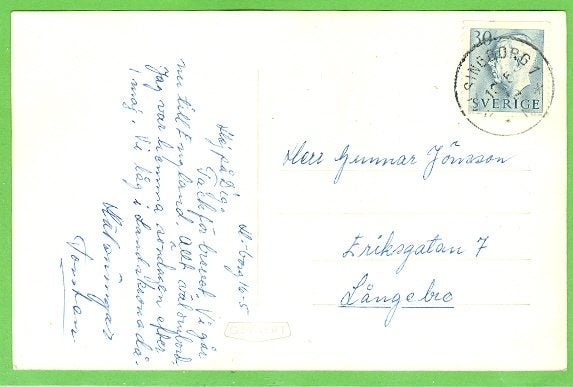 30
SVERIGE
H-borg 16-5
Hej på Dig.
Tack för brevet. Vi går
nu till England. Allt väl ombord.
Jag var hemma söndagen efter
1 maj. Vi låg i Landskrona då.
Hälsningar
Torstan
Herr Gunnar Jönsson
Eriksgatan 7
Långebro
GEVAERT